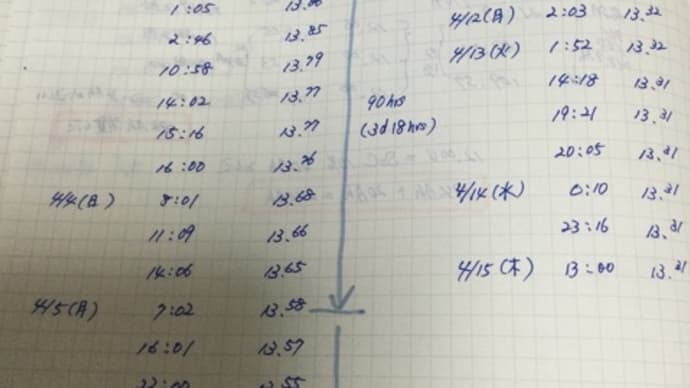 1:05
2:46 13.85
10:58 13.79
14:02 13.77
15:16 13.77
16:00 13.76
4/4(日) 8:01 13.68
11:09 13.66
14:06 13.65
4/5(月) 7:02 13.58
16:01 13.57
22:00 13.55
90hrs
(3d18hrs)
4/12(月) 2:03 13.32
4/13(火) 1:52 13.32
14:18 13.31
19:21 13.31
20:05 13.31
4/14(水) 0:10 13.31
23:16 13.31
4/15(木) 13:00 13.31